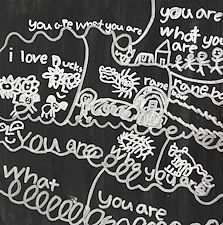 you are what you are
you are
what you
are
i love Ducks
you are
what
you are
you are